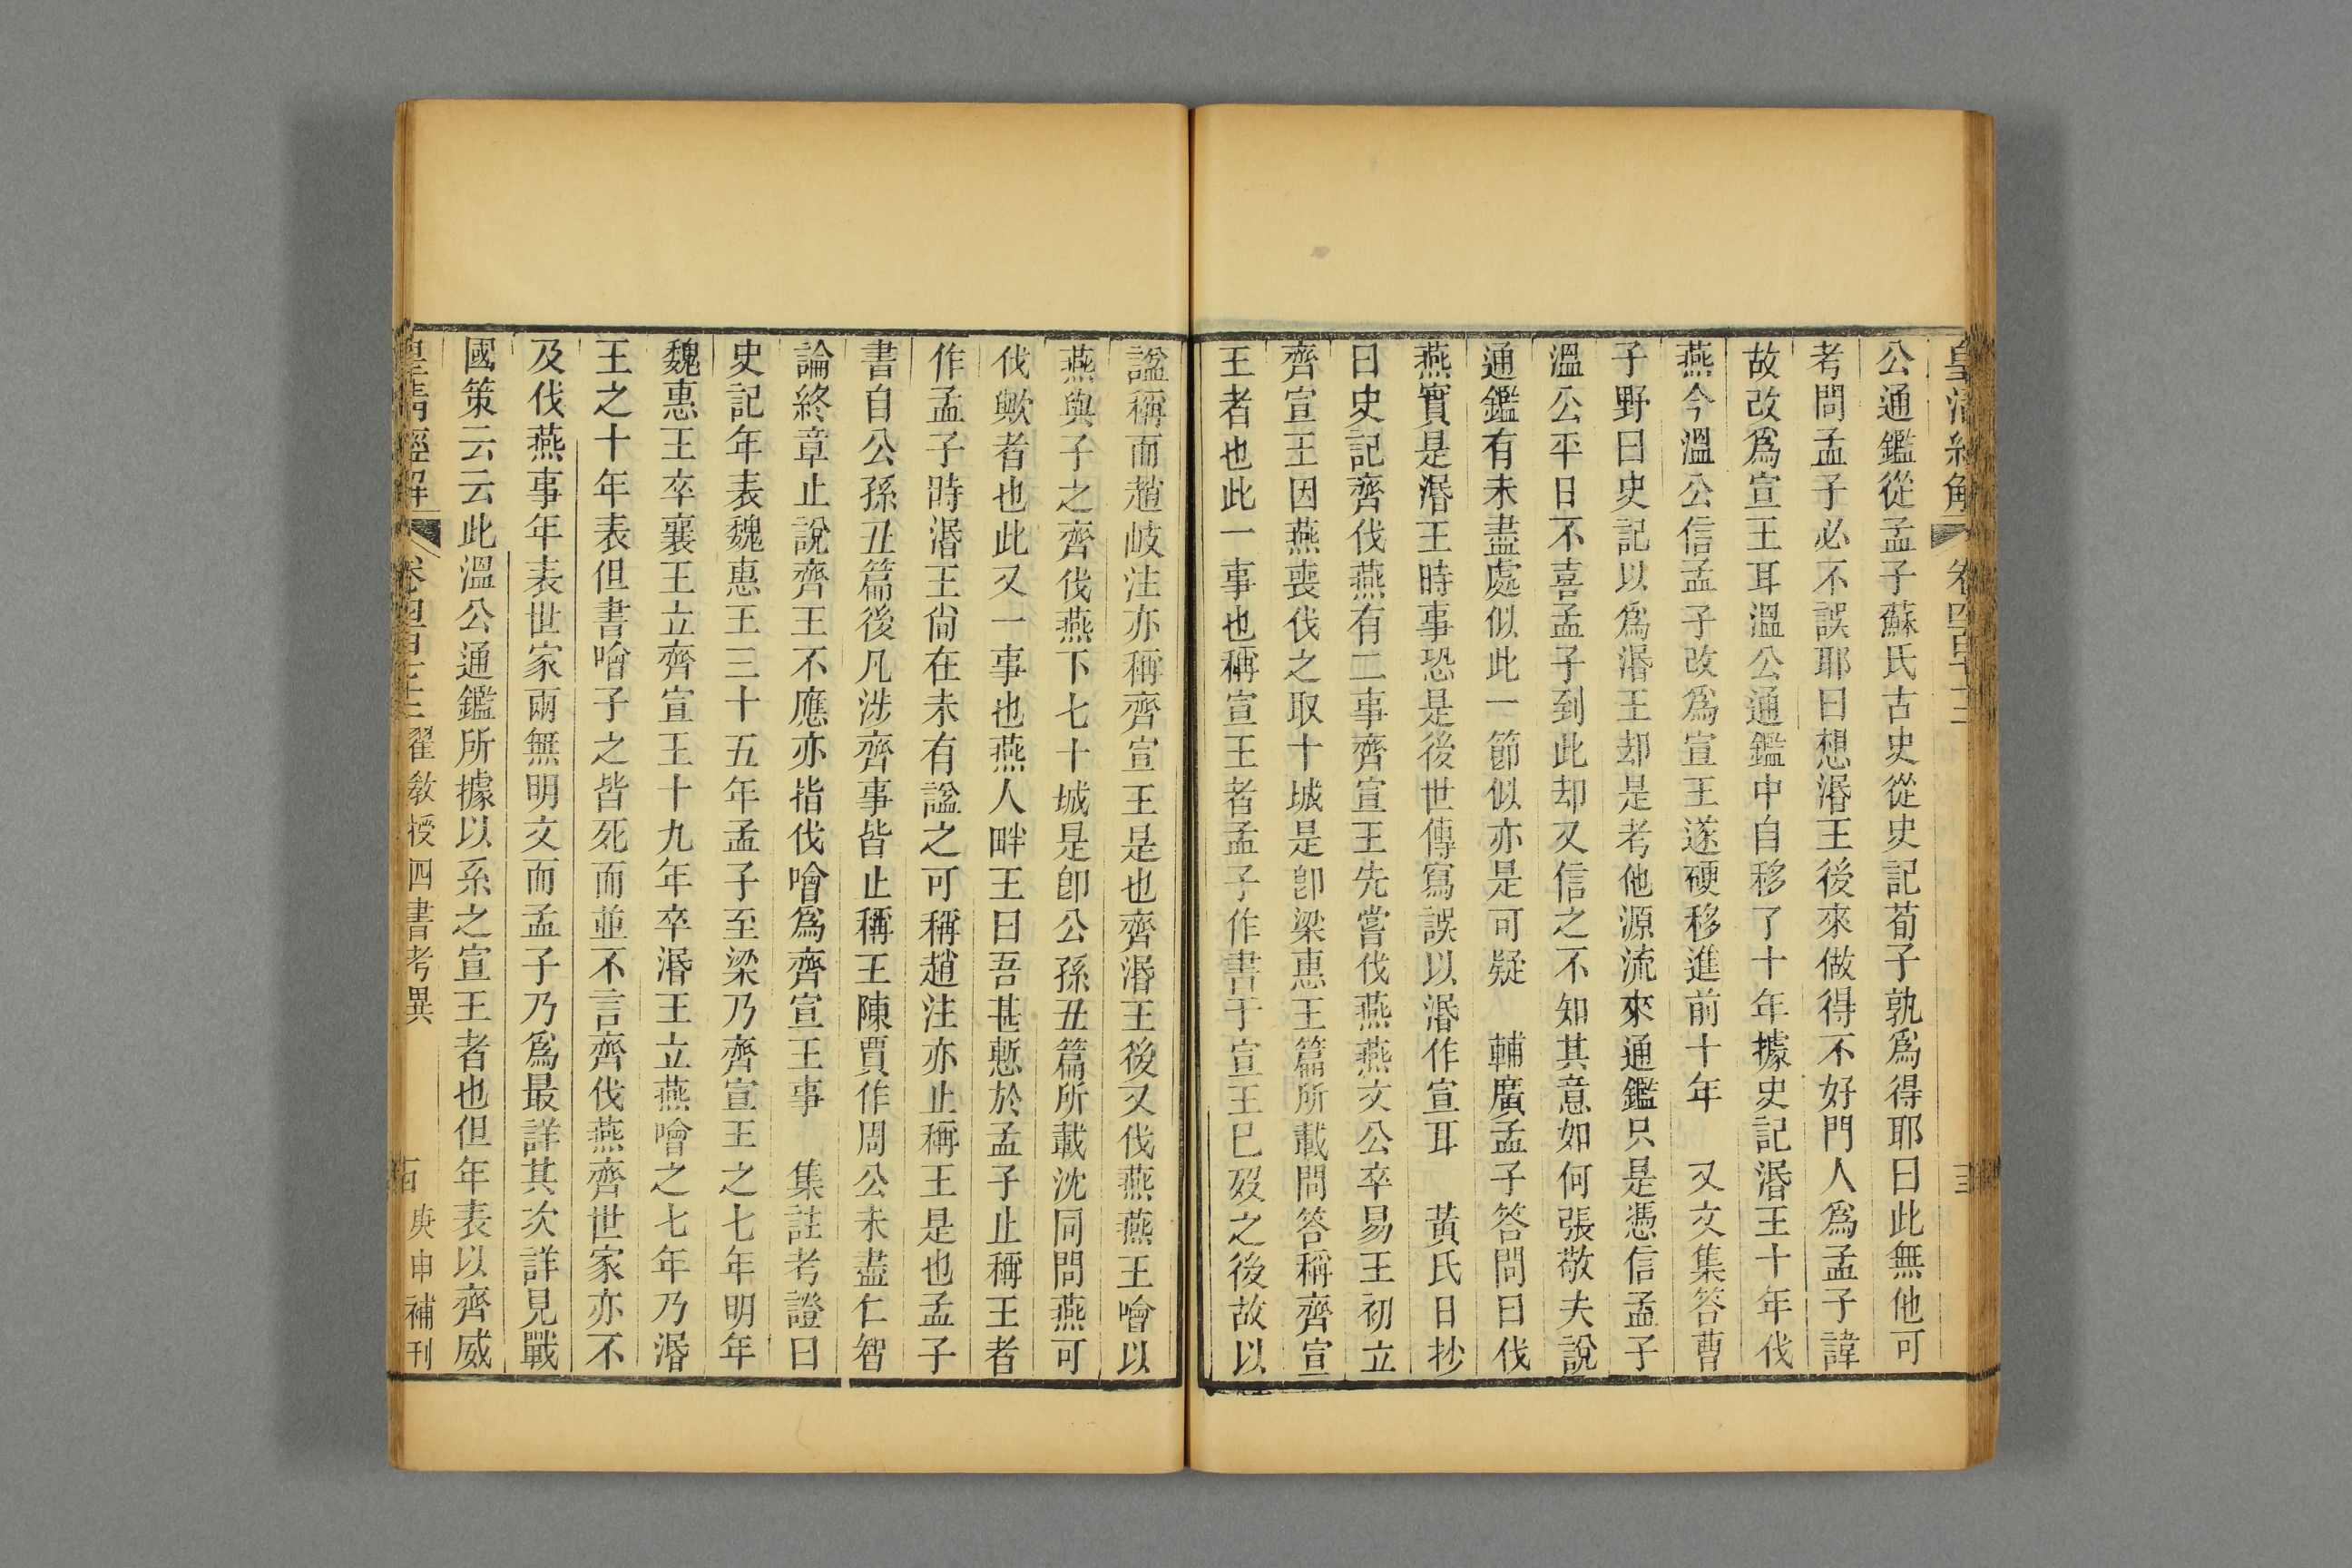 公通鑑從孟子蘇氏古史從史記荀子孰爲得耶曰此無他可
考問孟子必不誤耶曰想湣王後來做得不好門人爲孟子諱
故改爲宣王耳溫公通鑑中自移了十年據史記湣王十年伐
燕今溫公信孟子改爲宣王遂硬移進前十年　又文集答曹
子野曰史記以爲湣王却是考他源流來通鑑只是憑信孟子
溫公平日不喜孟子到此却又信之不知其意如何張敬夫說
通鑑有未盡處似此一節似亦是可疑　輔廣孟子答問曰伐
燕實是湣王時事恐是後世傳寫誤以湣作宣耳　黃氏日抄
曰史記齊伐燕有二事齊宣王先嘗伐燕燕文公卒易王初立
齊宣王因燕喪伐之取十城是卽梁惠王篇所載問答稱齊宣
王者也此一事也稱宣王者孟子作書于宣王已歿之後故以
諡稱而趙岐注亦稱齊宣王是也齊湣王後又伐燕燕王噲以
燕與子之齊伐燕下七十城是卽公孫丑篇所載沈同問燕可
伐歟者也此又一事也燕人畔王曰吾甚慙於孟子止稱王者
作孟子時湣王尙在未有諡之可稱趙注亦止稱王是也孟子
書自公孫丑篇後凡涉齊事皆止稱王陳賈作周公未盡仁智
論終章止說齊王不應亦指伐噲爲齊宣王事　集註考證曰
史記年表魏惠王三十五年孟子至梁乃齊宣王之七年明年
魏惠王卒襄王立齊宣王十九年卒湣王立燕噲之七年乃湣
王之十年表但書噲子之皆死而並不言齊伐燕齊世家亦不
及伐燕事年表世家兩無明文而孟子乃爲最詳其次詳見戰
國策云云此溫公通鑑所據以系之宣王者也但年表以齊威
皇清經解　卷四百七十三　翟教授四書考異　庚申補刊